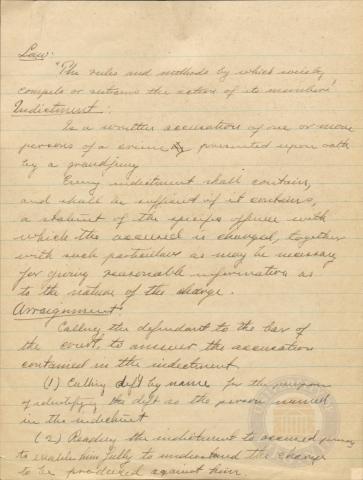 Law:
"The rules and methods by which society
compels or restrains the action of its members"
Indictment:
Is a written accusation of one or more
persons of a crime presented upon oath
by a grand jury
Every indictment shall contain,
and shall be sufficient if it contains,
a statement of the specific offense with
which the accused is charged, together
with such particulars as may be necessary
for giving reasonable information as
to the nature of the charge.
Arraignment:
Calling the defendant to the bar of
the court, to answer the accusation
contained in the indictment
(1) Calling deft by name for the purpose
of identifying the deft as the person named
in the indictment
(2) Reading the indictment to accused
to enable him fully to understand the charge
to be produced against him.